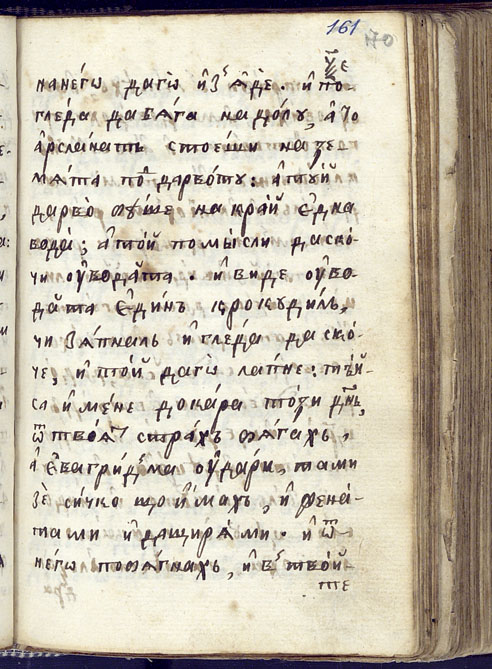 161 70
ꙋ҆е
нанегѡ̀ дагѡ̀ и҆зѣ ѧ҆дѐ. и҆по-
глѐда дабѧ́га надо́лꙋ, а҆то
а҆рсла́натъ стоѐши на зе-
мѧ́та по дарво́тꙋ: а҆тꙋ́й
дарво̀ бꙋ́ше накра́й є҆дна
вода̀; а҆то́й помы́сли даско́-
чи ѹ҆вода́та. и҆виде ѹ҆во-
да́та є҆ди́нъ крокꙋди́лъ,
чи зѧ́пналъ и҆глѐда даско́-
че, и҆то́й дагѡ̀ ла́пне: тѣ́й-
си и҆мѐне дока́ра то́зи дн҃ь,
ѿ твоѧ̀ стра́хъ бѧ́гахъ,
а҆ є҆вагри́дᲂма ѹ҆да́ри, тами
зѐ си́чко що и҆́махъ, и҆ жена́-
тами и҆дащирѧ́ми. и҆ ѿ
него̀ побѧ́гнахъ, и҆ въ тво́й-
те